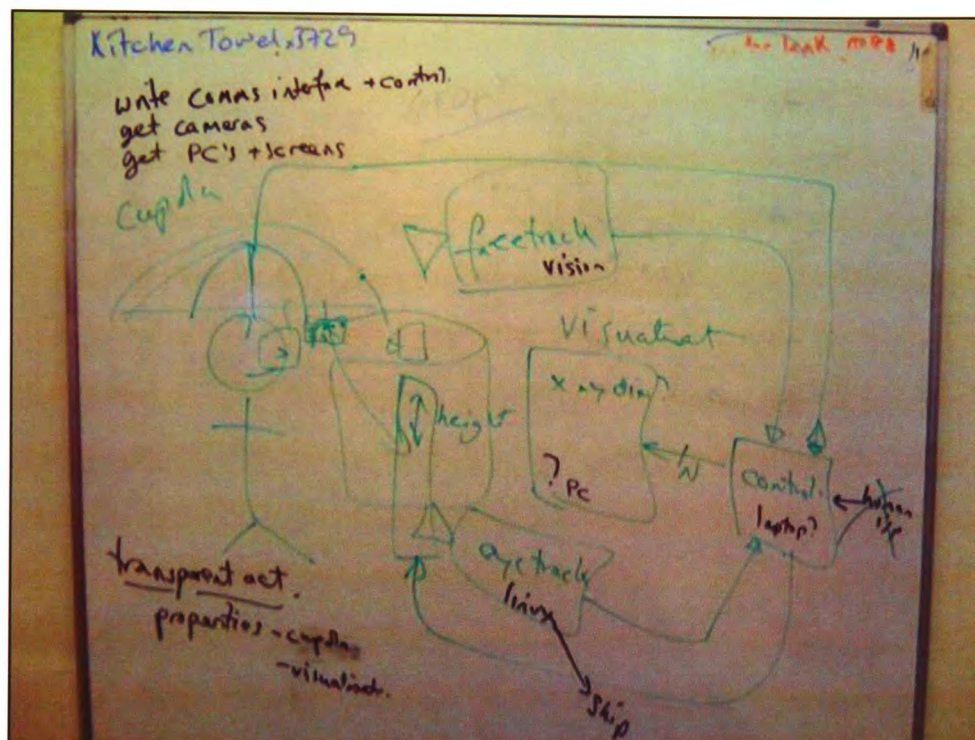 Kitchen Towel. 3729
write comms interface + control.
get cameras
get PC's + screens
cupola
facetrack
vision
visualisat
height
? PC
N
control.
laptop?
human
eyetrack
linux
ship
transparent act.
properties - cupola
- visualisat.